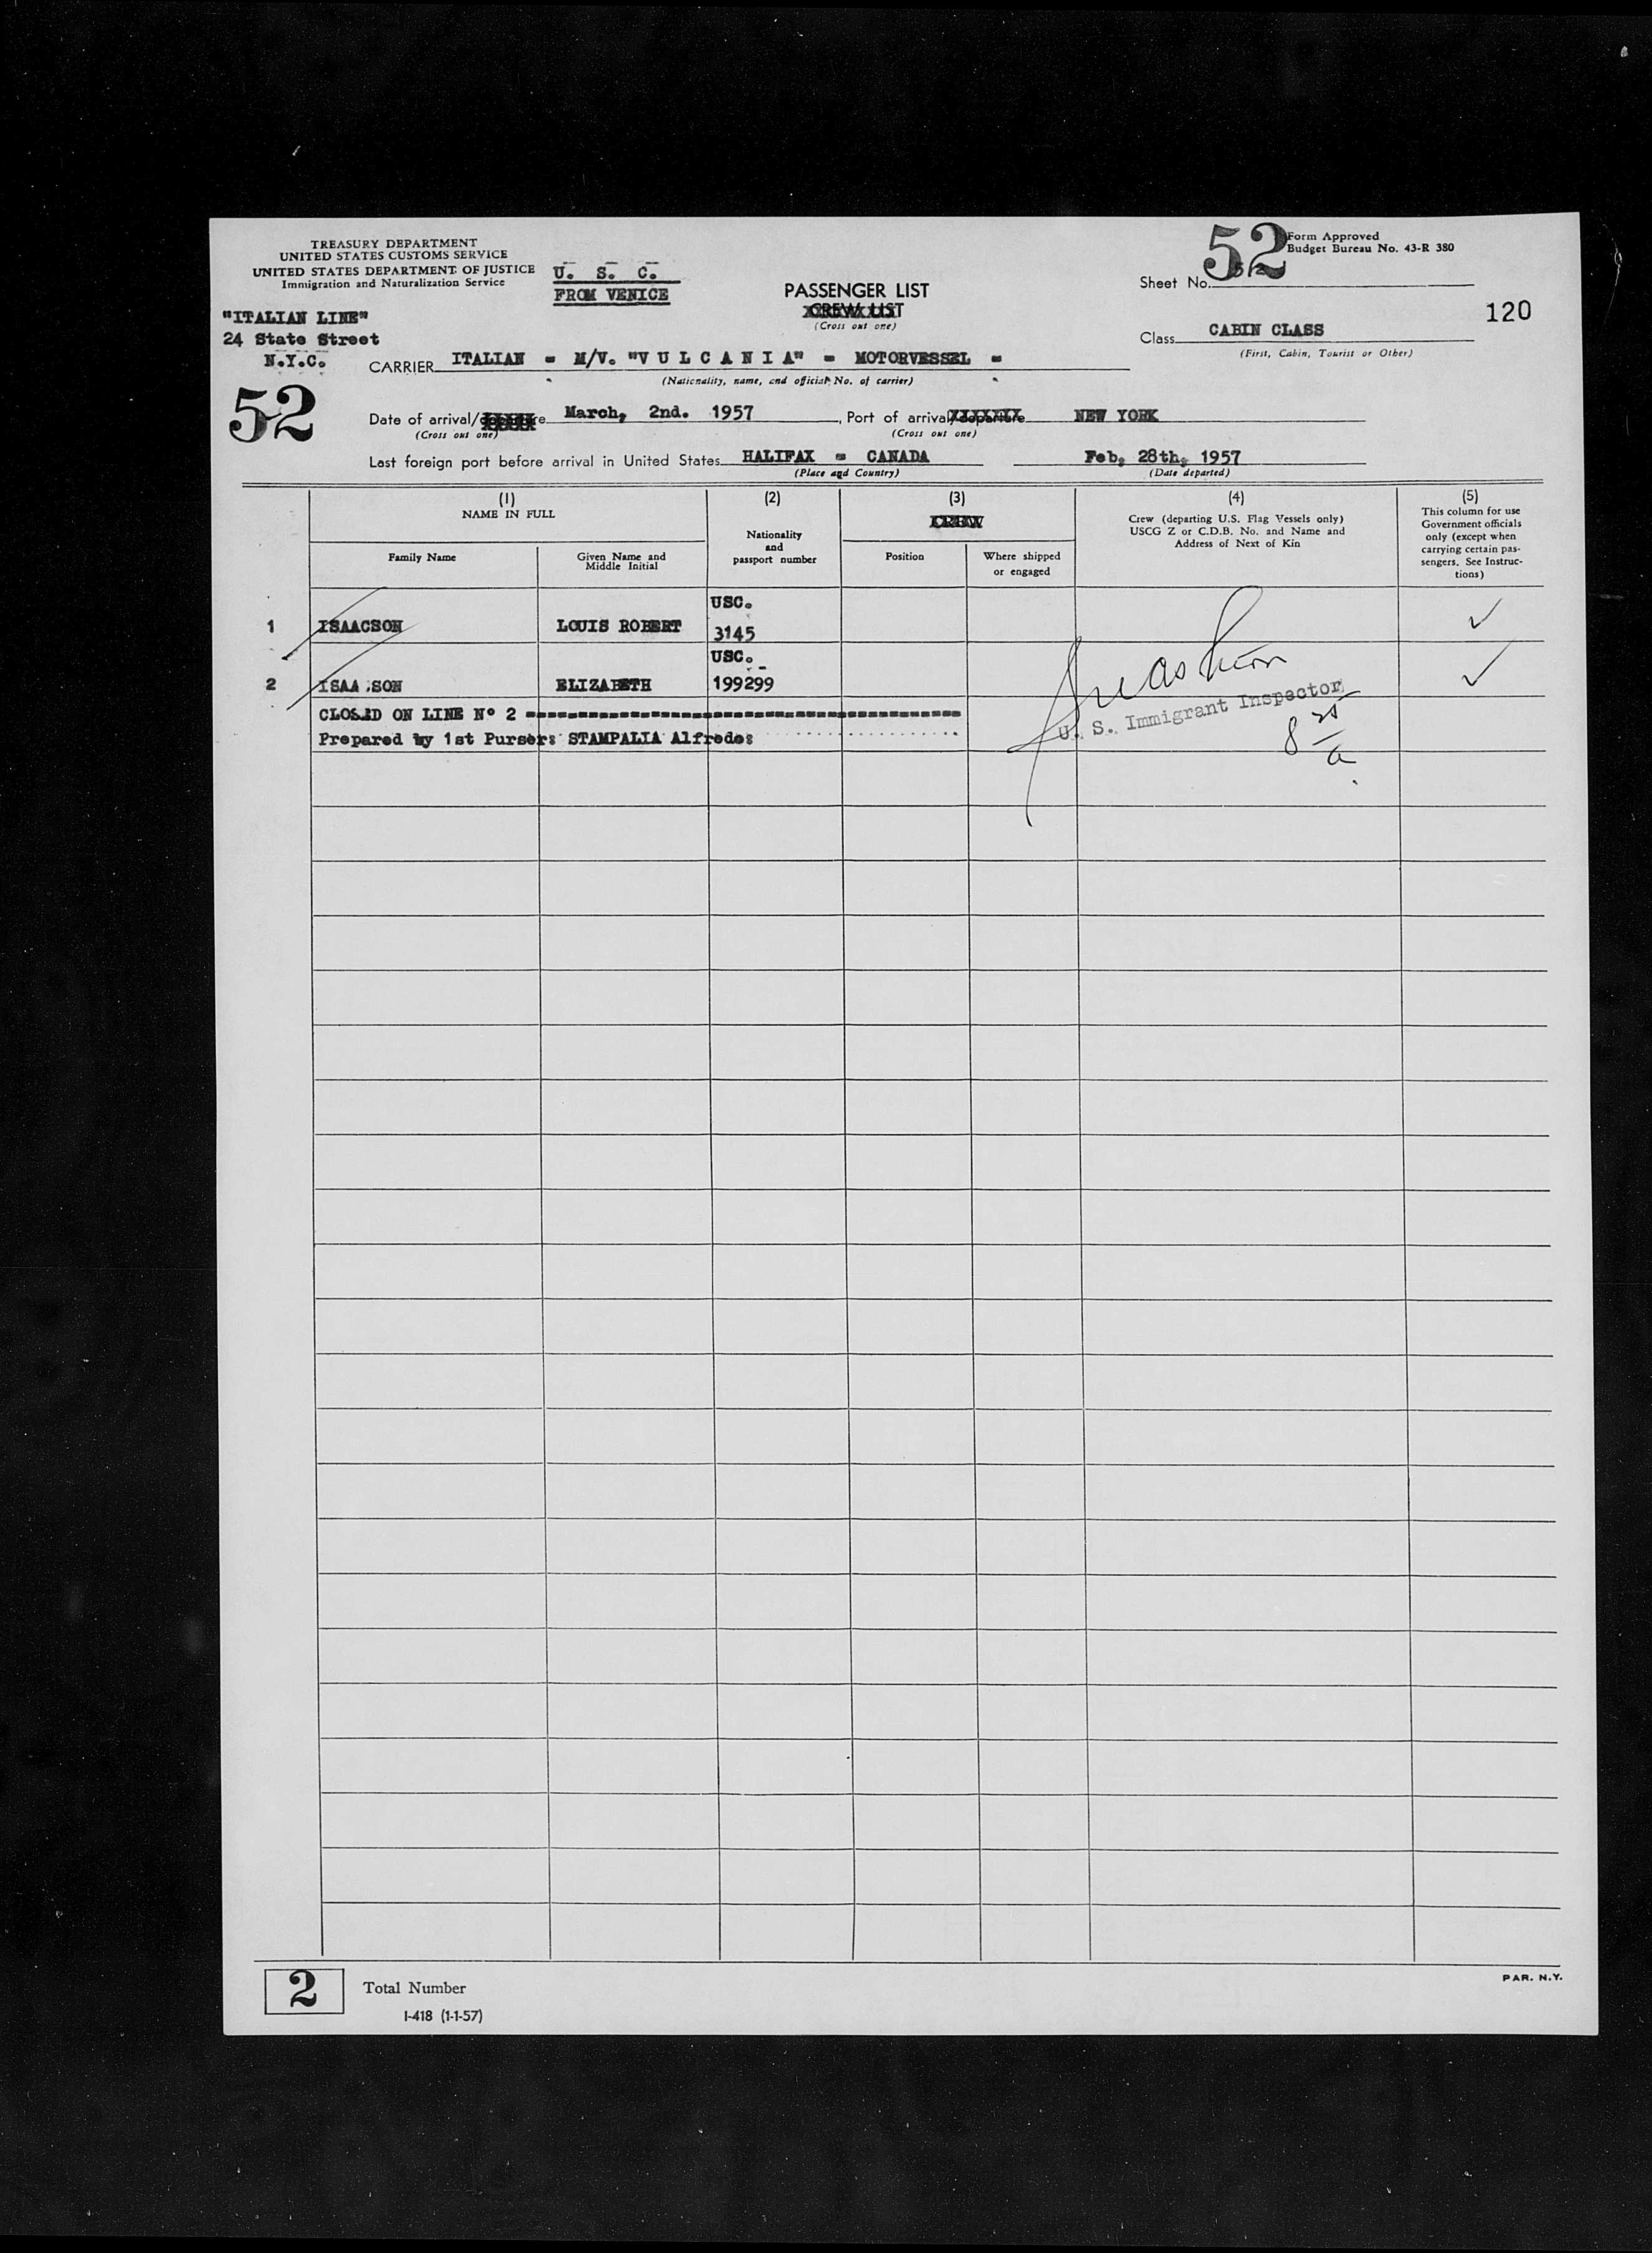 TREASURY DEPARTMENT
UNITED STATES CUSTOMS SERVICE
UNITED STATES DEPARTMENT OF JUSTICE
Immigration and Naturalization Service
U. S. C.
FROM VENICE
"ITALIAN LINE"
24 State Street
N.Y.C.
52
PASSENGER LIST
CREW LIST
(Cross out one)
52
Form Approved
Budget Bureau No. 43-R 380
Sheet No. 52
120
Class CABIN CLASS
(First, Cabin, Tourist or Other)
CARRIER ITALIAN = M/V. "V U L C A N I A" = MOTORVESSEL =
(Nationality, name, and official No. of carrier)
Date of arrival/departure March, 2nd. 1957, Port of arrival/departure NEW YORK
(Cross out one) (Cross out one)
Last foreign port before arrival in United States HALIFAX = CANADA Feb, 28th, 1957
(Place and Country) (Date departed)
(1)
NAME IN FULL
Family Name
Given Name and
Middle Initial
(2)
Nationality
and
passport number
(3)
CREW
Position
Where shipped
or engaged
(4)
Crew (departing U.S. Flag Vessels only)
USCG Z or C.D.B. No. and Name and
Address of Next of Kin
(5)
This column for use
Government officials
only (except when
carrying certain pas-
sengers. See Instruc-
tions)
USC.
1 ISAACSON LOUIS ROBERT 3145 ✓
USC.
2 ISAA SON ELIZABETH 199299 ✓
CLOSED ON LINE Nº 2
Prepared by 1st Purser: STAMPALIA Alfredo:
U. S. Immigrant Inspector
2
Total Number
I-418 (1-1-57)
PAR. N.Y.